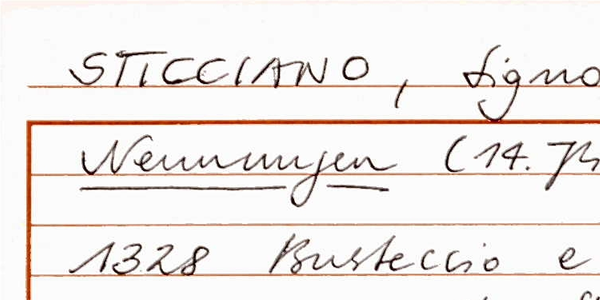 STICCIANO, Signo
Nennungen (14. Jh
1328 Busteccio e